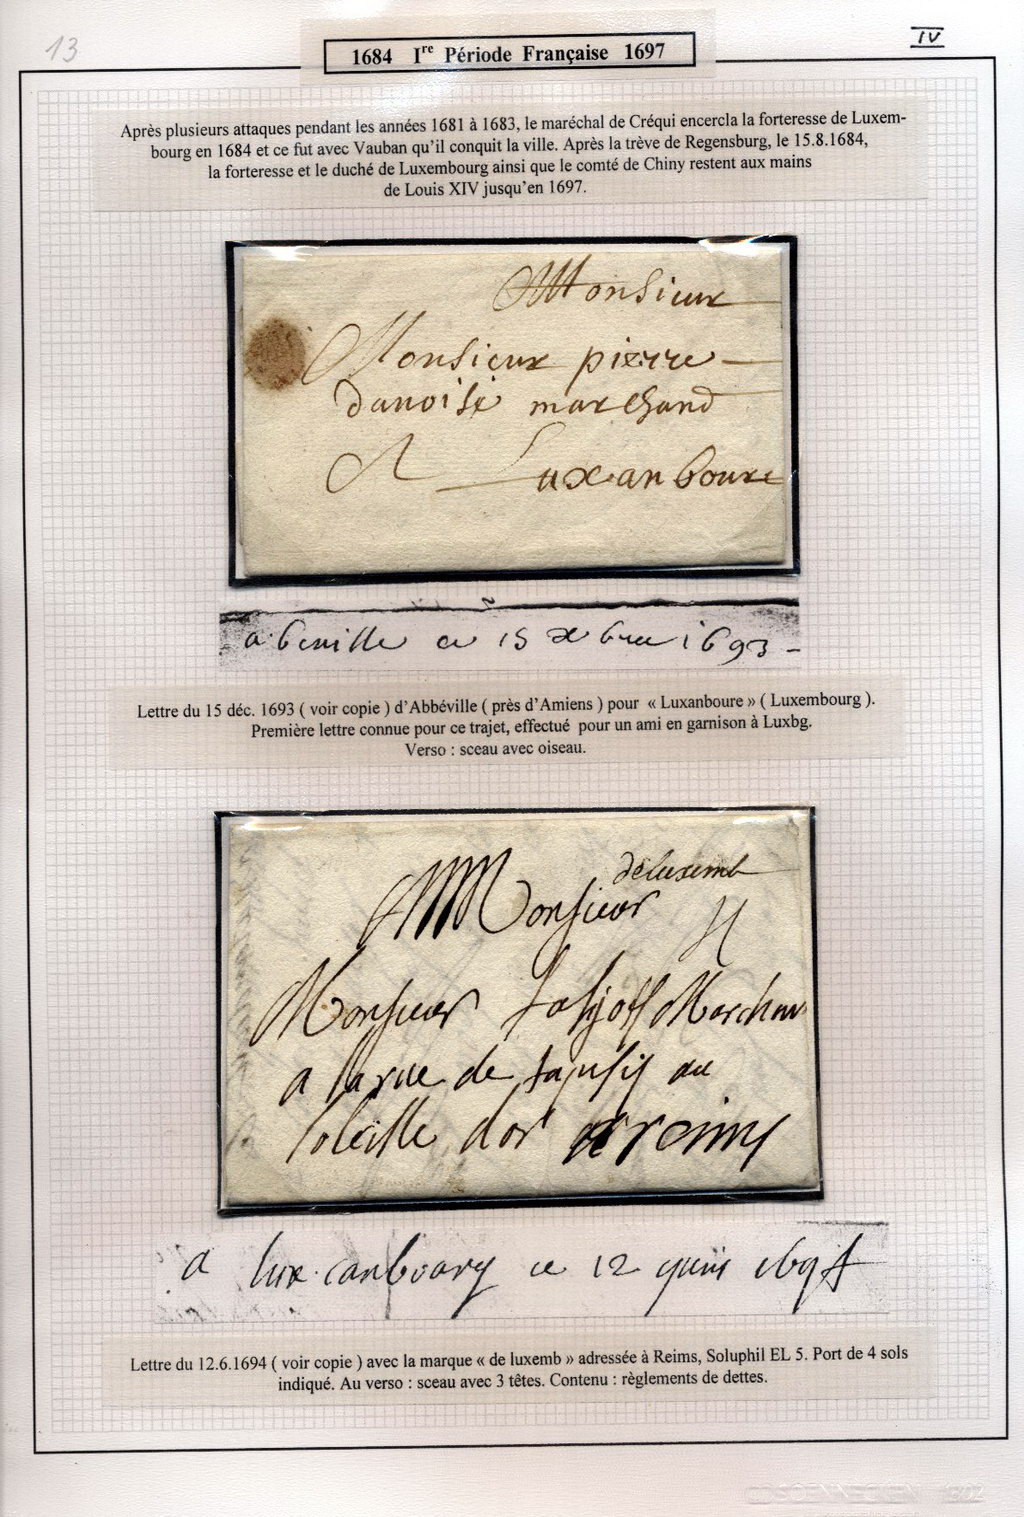 13
IV
1684 Iʳᵉ Période Française 1697
Après plusieurs attaques pendant les années 1681 à 1683, le maréchal de Créqui encercla la forteresse de Luxem-
bourg en 1684 et ce fut avec Vauban qu'il conquit la ville. Après la trève de Regensburg, le 15.8.1684,
la forteresse et le duché de Luxembourg ainsi que le comté de Chiny restent aux mains
de Louis XIV jusqu'en 1697.
Monsieur
Monsieur pierre
danoise marchand
A Luxanboure
a beuille ce 15 xbre 1693
Lettre du 15 déc. 1693 ( voir copie ) d'Abbéville ( près d'Amiens ) pour « Luxanboure » ( Luxembourg ).
Première lettre connue pour ce trajet, effectué pour un ami en garnison à Luxbg.
Verso : sceau avec oiseau.
de luxemb
Monsieur
4
Monsieur Marchan
a la rue de au
soleille dor a reims
a luxanbourg ce 12 1694
Lettre du 12.6.1694 ( voir copie ) avec la marque « de luxemb » adressée à Reims, Soluphil EL 5. Port de 4 sols
indiqué. Au verso : sceau avec 3 têtes. Contenu : règlements de dettes.